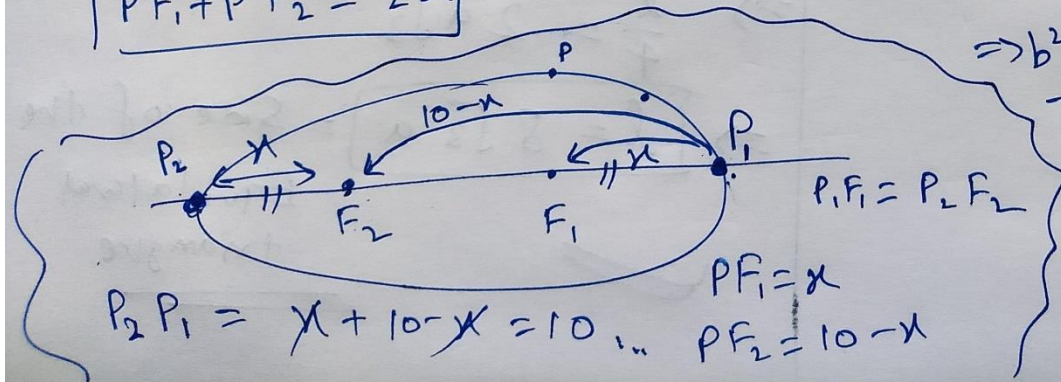 PF₁ + PF₂ = 2
⇒ b²
P
10-x
P₂ x x P₁
F₂ F₁
P₁F₁ = P₂F₂
PF₁ = x
P₂P₁ = x + 10-x = 10 ...
PF₂ = 10-x